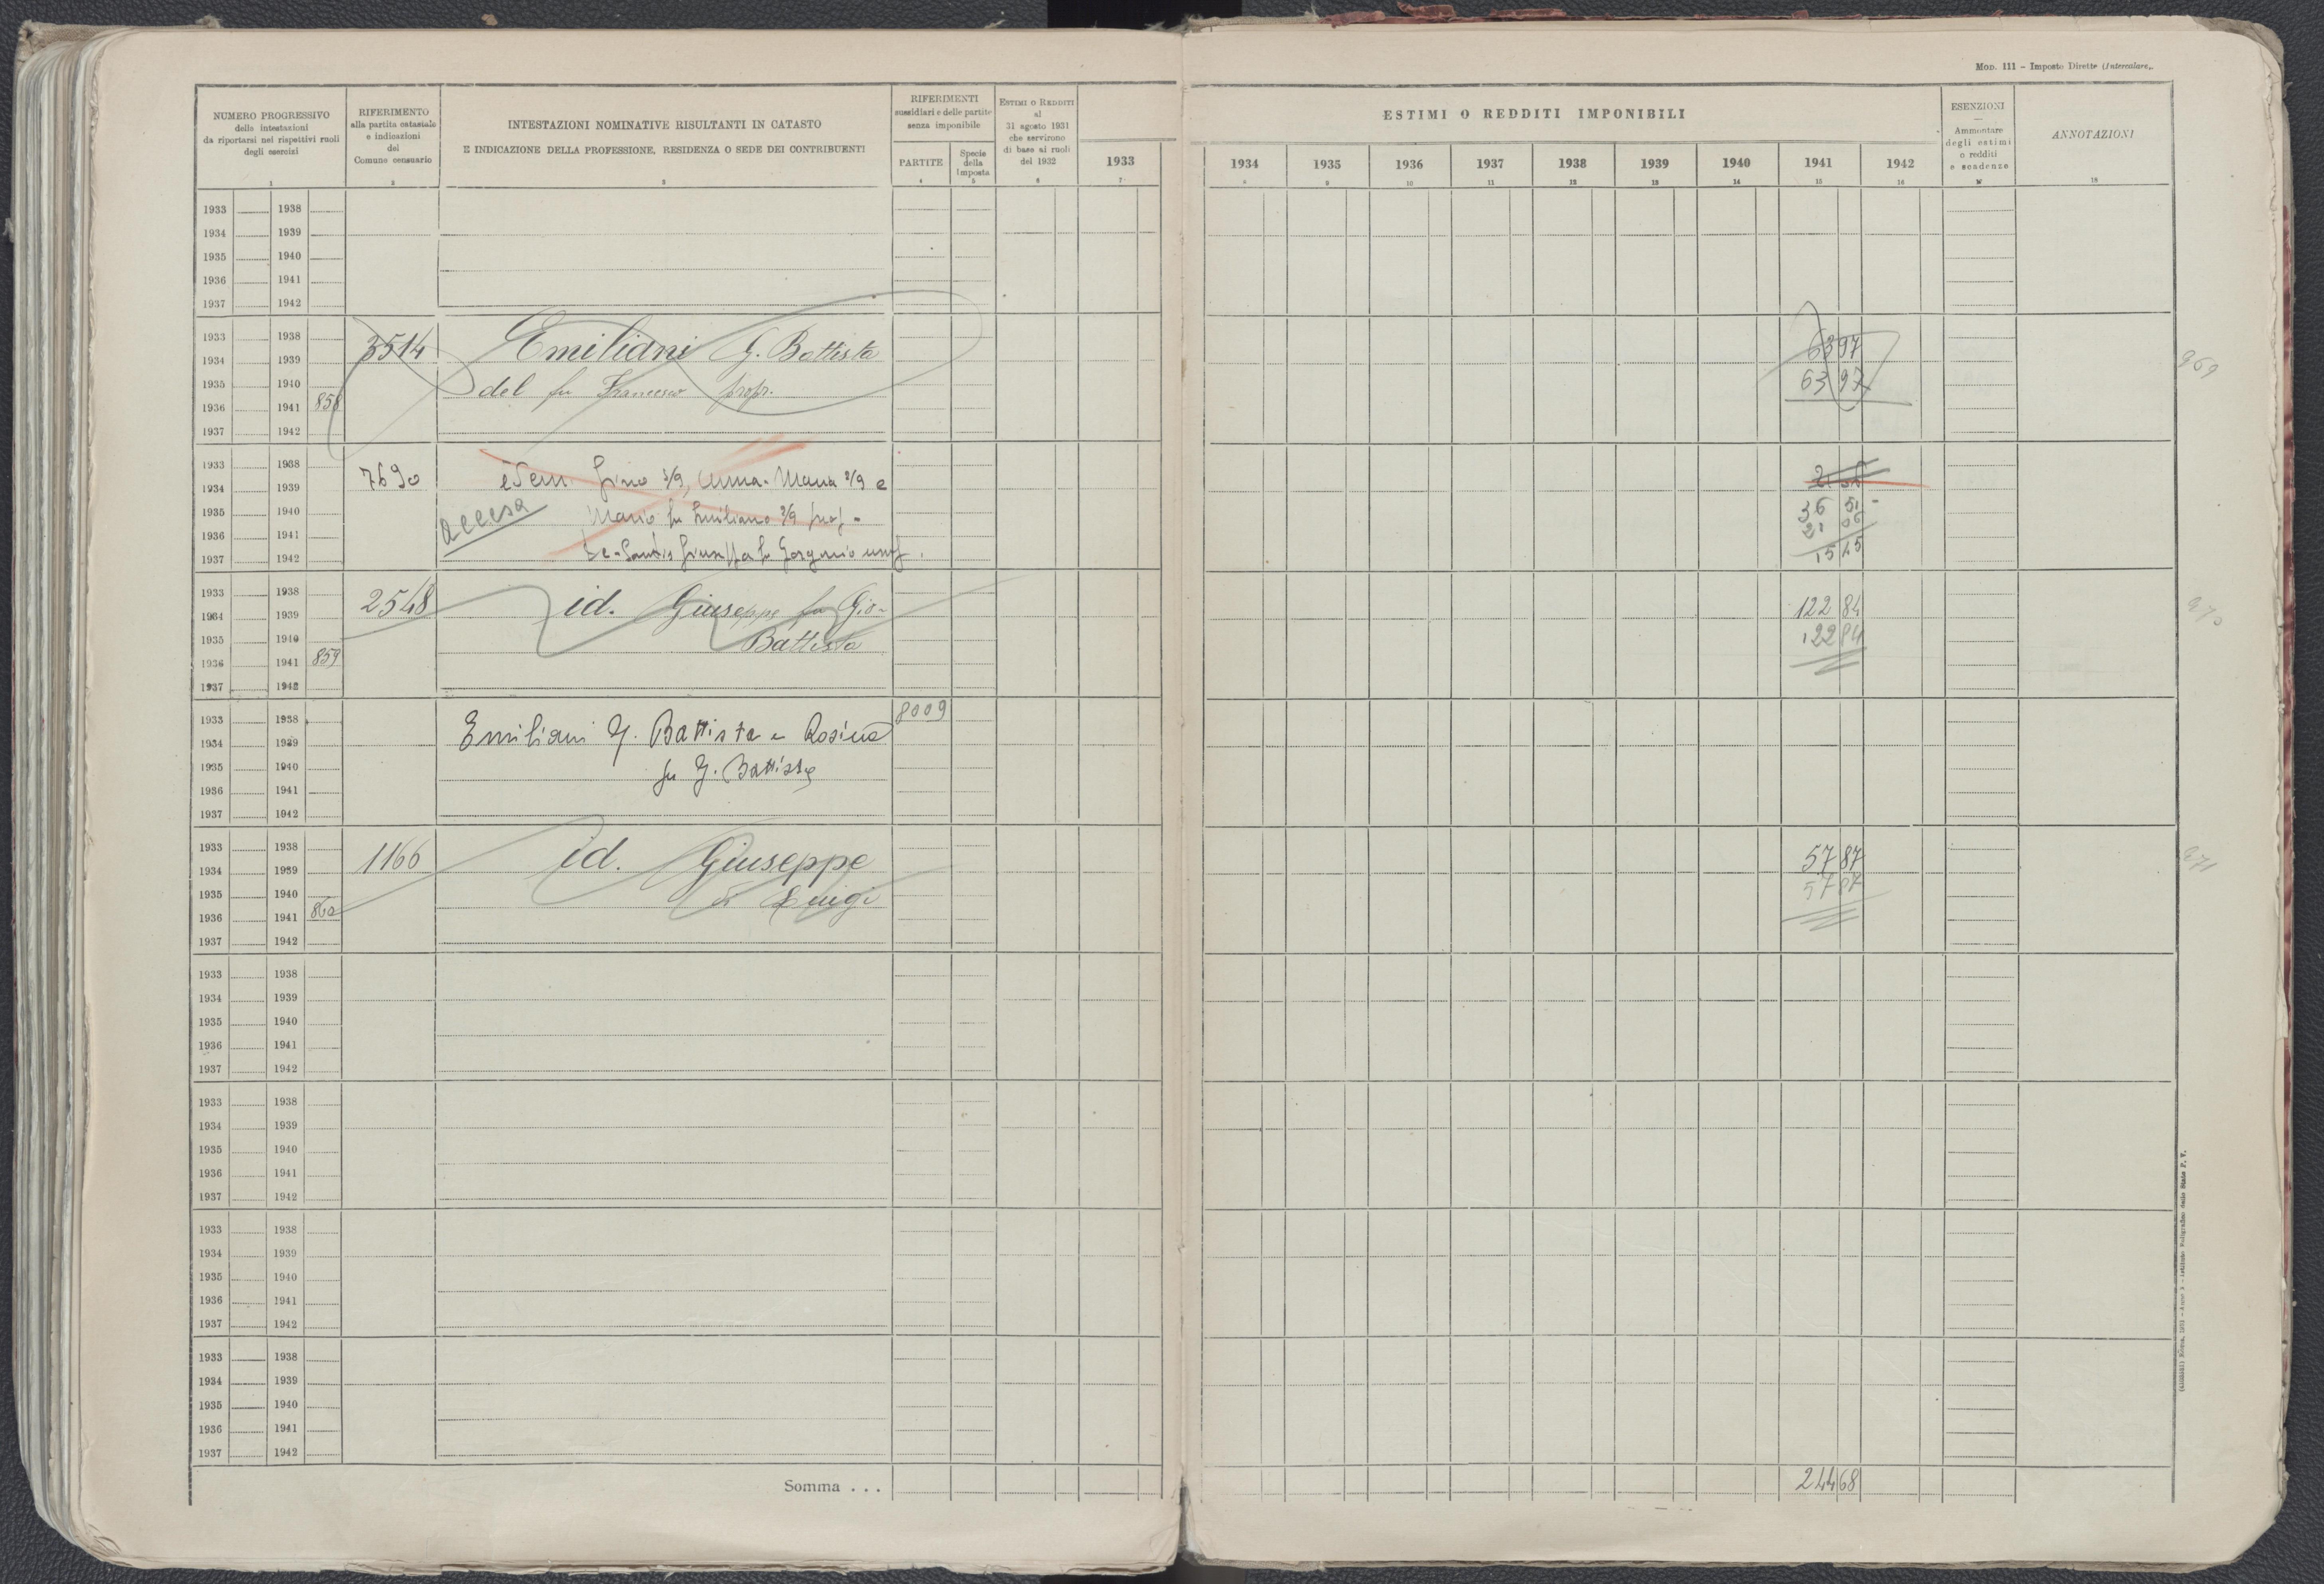 MOD. 111 – Imposte Dirette (Intercalare).
NUMERO PROGRESSIVO
delle intestazioni
da riportarsi nei rispettivi ruoli
degli esercizi
1
RIFERIMENTO
alla partita catastale
e indicazioni
del
Comune censuario
2
INTESTAZIONI NOMINATIVE RISULTANTI IN CATASTO
E INDICAZIONE DELLA PROFESSIONE, RESIDENZA O SEDE DEI CONTRIBUENTI
3
RIFERIMENTI
sussidiari e delle partite
senza imponibile
PARTITE
4
Specie
della
Imposta
5
ESTIMI O REDDITI
al
31 agosto 1931
che servirono
di base ai ruoli
del 1932
6
1933
7
ESTIMI O REDDITI IMPONIBILI
1934 1935 1936 1937 1938 1939 1940 1941 1942
8 9 10 11 12 13 14 15 16
ESENZIONI
—
Ammontare
degli estimi
o redditi
e scadenze
17
ANNOTAZIONI
18
1933 1938
1934 1939
1935 1940
1936 1941
1937 1942
1933 1938
1934 1939 3514 Emiliani G. Battista 63 97
1935 1940 del fu Francesco propr. 63 97 969
1936 1941 858
1937 1942
1933 1938 7690 idem Gino 2/9, Anna-Maria 2/9 e
1934 1939
1935 1940 accesa Mario fu Emiliano 2/9 prop- 36 51
1936 1941 21 06
1937 1942 De-Santis Giuseppa fu Gorgonio usuf. 15 45
1933 1938
1934 1939 2548 id. Giuseppe fu Gio- 122 84 970
1935 1940 Battista 122 84
1936 1941 859
1937 1942
1933 1938 8009
1934 1939 Emiliani G. Battista e Rosina
1935 1940 fu G. Battista
1936 1941
1937 1942
1933 1938
1934 1939 1166 id. Giuseppe 57 87 971
1935 1940 di Luigi 57 87
1936 1941 860
1937 1942
1933 1938
1934 1939
1935 1940
1936 1941
1937 1942
1933 1938
1934 1939
1935 1940
1936 1941
1937 1942
1933 1938
1934 1939
1935 1940
1936 1941
1937 1942
1933 1938
1934 1939
1935 1940
1936 1941
1937 1942
Somma . . . 244 68